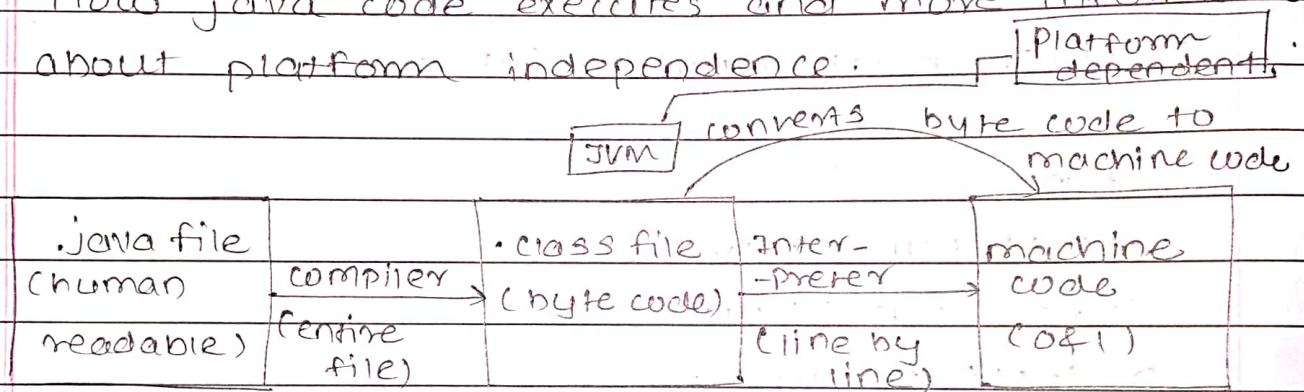 How java code executes and more
about platform independence.
Platform
dependent
.
JVM
converts byte code to
machine code
.java file
(human
readable)
compiler
(entire
file)
.class file
(byte code)
Inter-
-preter
(line by
line)
machine
code
(0&1)